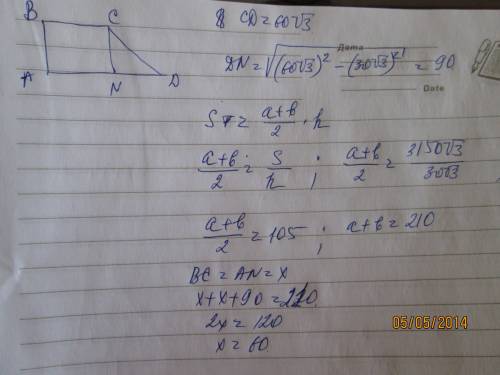 B C
A N D
8 CD=60√3
Дата
DN=√(60√3)²-(30√3)² = 90
Date
S = a+b/2 · h
a+b/2 = S/h ; a+b/2 = 3150√3/30√3
a+b/2 = 105 ; a+b=210
BC=AN=x
x+x+90=210
2x=120
x=60.
05/05/2014